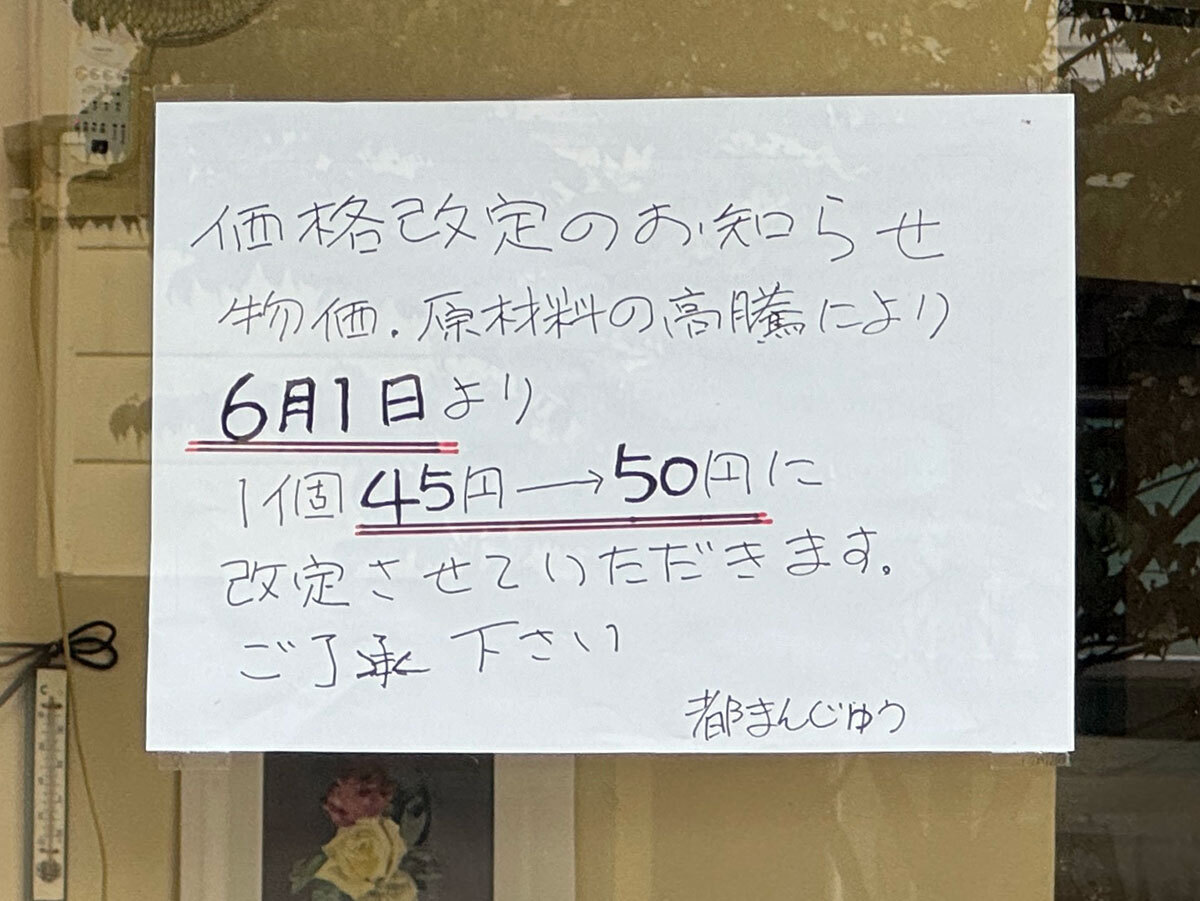 価格改定のお知らせ
物価.原材料の高騰により
6月1日より
1個45円→50円に
改定させていただきます。
ご了承 下さい
都まんじゅう